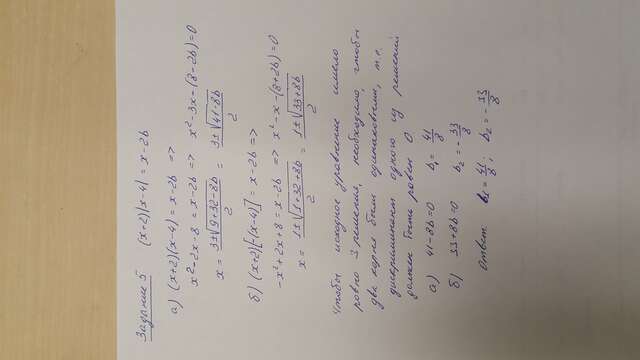 Задание 5 (x+2)|x-4| = x-2b
а) (x+2)(x-4) = x-2b =>
x²-2x-8 = x-2b => x²-3x-(8-2b)=0
x = 3±√9+32-8b / 2 = 3±√41-8b / 2
б) (x+2)[-(x-4)] = x-2b =>
-x²+2x+8 = x-2b => x²-x-(8+2b)=0
x = 1±√1+32+8b / 2 = 1±√33+8b / 2
Чтобы исходное уравнение имело
ровно 3 решения, необходимо, чтобы
два корня были одинаковыми, т.е.
дискриминант одного из решений
должен быть равен 0
а) 41-8b=0 b₁ = 41/8
б) 33+8b=0 b₂ = -33/8
Ответ b₁ = 41/8; b₂ = -33/8